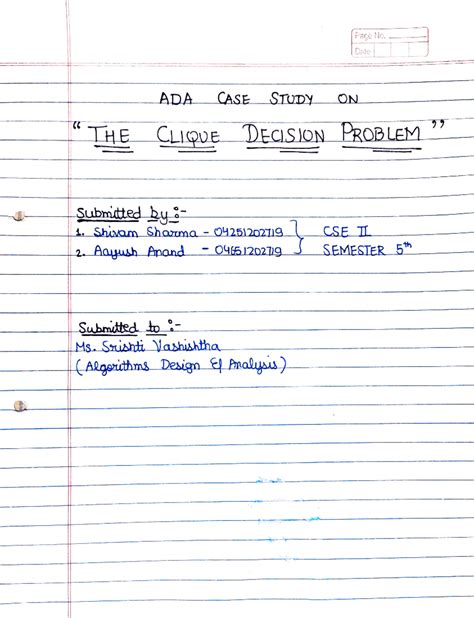 Page No.
Date
ADA CASE STUDY ON
"THE CLIQUE DECISION PROBLEM"
Submitted by :-
1. Shivam Sharma - 04251202719 } CSE II
2. Aayush Anand - 04651202719 } SEMESTER 5th
Submitted to :-
Ms. Srishti Vashishtha
(Algorithms Design & Analysis)